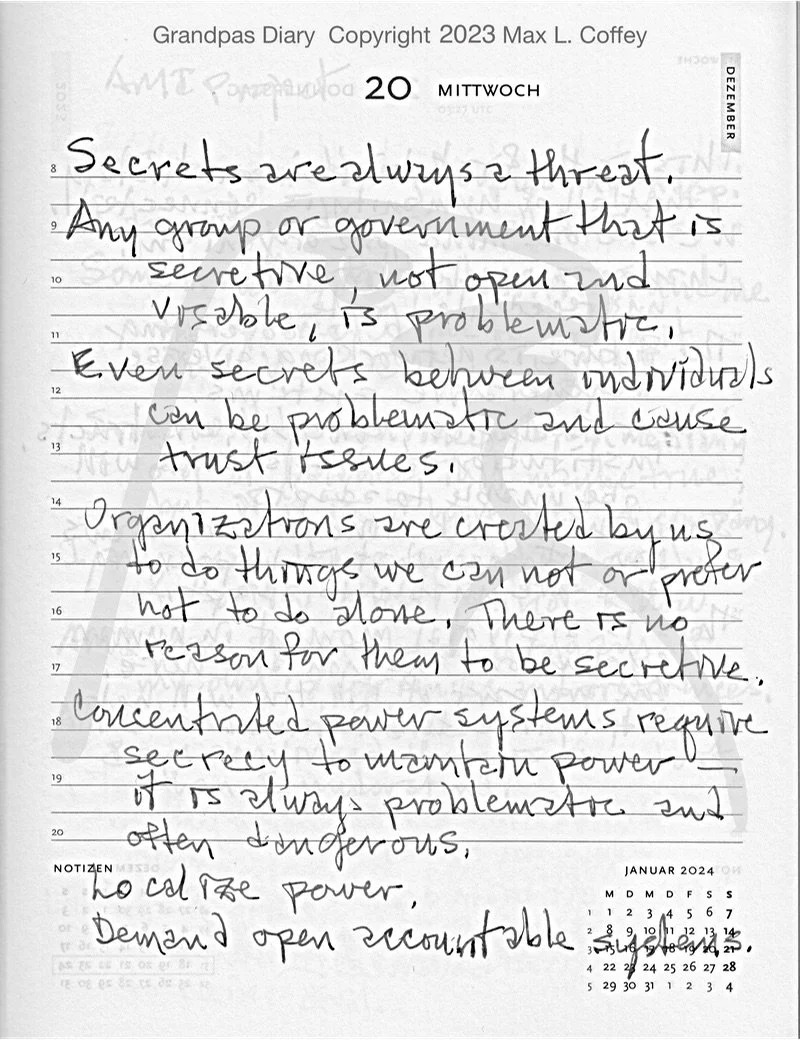 Grandpas Diary Copyright 2023 Max L. Coffey
20 MITTWOCH
DEZEMBER
8 Secrets are always a threat.
9 Any group or government that is
10 secretive, not open and
visable, is problematic.
11
Even secrets between individuals
12 can be problematic and cause
13 trust issues.
14 Organizations are created by us
15 to do things we can not or prefer
16 not to do alone. There is no
17 reason for them to be secretive.
18 Concentrated power systems require
secrecy to maintain power —
19 it is always problematic and
20 often dangerous.
NOTIZEN
Localize power.
Demand open accountable systems.
JANUAR 2024
M D M D F S S
1 1 2 3 4 5 6 7
2 8 9 10 11 12 13 14
3 15 16 17 18 19 20 21
4 22 23 24 25 26 27 28
5 29 30 31 1 2 3 4